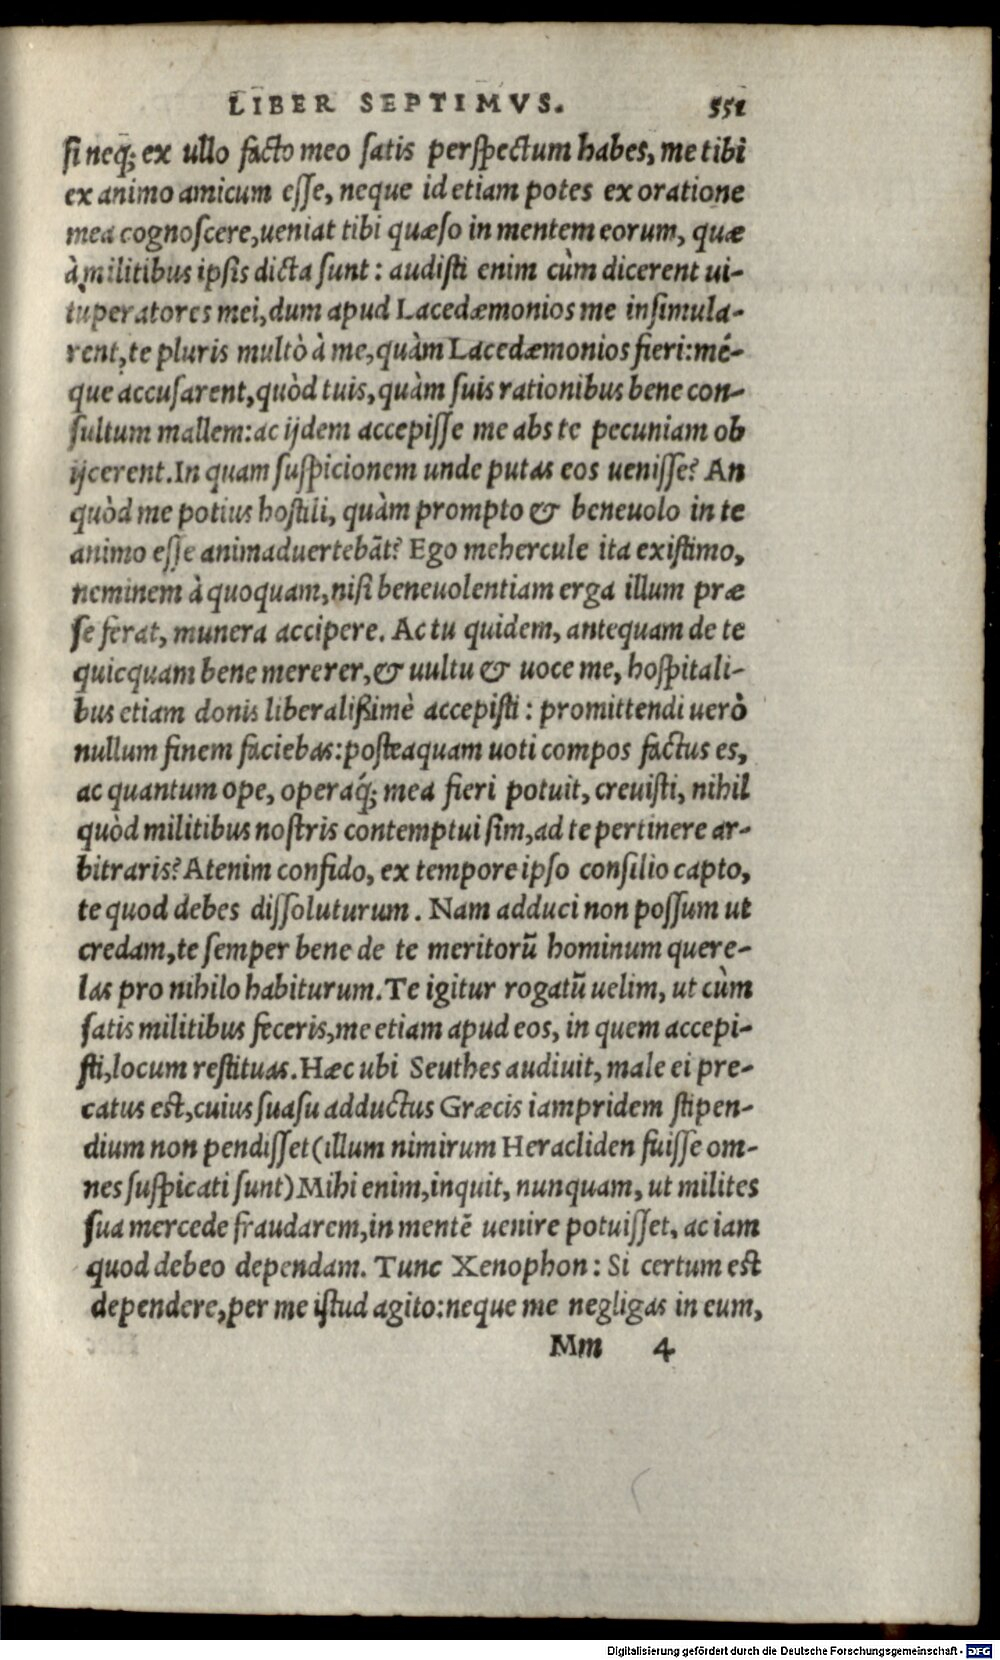 LIBER SEPTIMVS. 551
si neq́; ex ullo facto meo satis perspectum habes, me tibi
ex animo amicum esse, neque id etiam potes ex oratione
mea cognoscere, ueniat tibi quæso in mentem eorum, quæ
à militibus ipsis dicta sunt: audisti enim cùm dicerent ui-
tuperatores mei, dum apud Lacedæmonios me insimula-
rent, te pluris multò à me, quàm Lacedæmonios fieri: mé-
que accusarent, quòd tuis, quàm suis rationibus bene con-
sultum mallem: ac ijdem accepisse me abs te pecuniam ob
ijcerent. In quam suspicionem unde putas eos uenisse? An
quòd me potius hostili, quàm prompto & beneuolo in te
animo esse animaduertebãt? Ego mehercule ita existimo,
neminem à quoquam, nisi beneuolentiam erga illum præ
se ferat, munera accipere. Ac tu quidem, antequam de te
quicquam bene mererer, & uultu & uoce me, hospitali-
bus etiam donis liberalißimè accepisti: promittendi uerò
nullum finem faciebas: posteaquam uoti compos factus es,
ac quantum ope, operaq́; mea fieri potuit, creuisti, nihil
quòd militibus nostris contemptui sim, ad te pertinere ar-
bitraris? Atenim confido, ex tempore ipso consilio capto,
te quod debes dissoluturum. Nam adduci non possum ut
credam, te semper bene de te meritorũ hominum quere-
las pro nihilo habiturum. Te igitur rogatũ uelim, ut cùm
satis militibus feceris, me etiam apud eos, in quem accepi-
sti, locum restituas. Hæc ubi Seuthes audiuit, male ei pre-
catus est, cuius suasu adductus Græcis iampridem stipen-
dium non pendisset (illum nimirum Heracliden fuisse om-
nes suspicati sunt) Mihi enim, inquit, nunquam, ut milites
sua mercede fraudarem, in mentẽ uenire potuisset, ac iam
quod debeo dependam. Tunc Xenophon: Si certum est
dependere, per me istud agito: neque me negligas in eum,
Mm 4
Digitalisierung gefördert durch die Deutsche Forschungsgemeinschaft - DFG